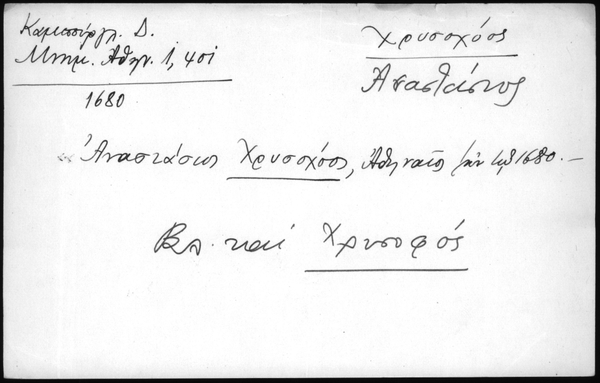 Καμπούργλ. Δ.
Μνημ. Αθην. 1, 401
1680
Χρυσοχόος
Αναστάσιος
Αναστάσιος Χρυσοχόος, Αθηναῖος 1680.—
Βλ. καί Χρυσοφός